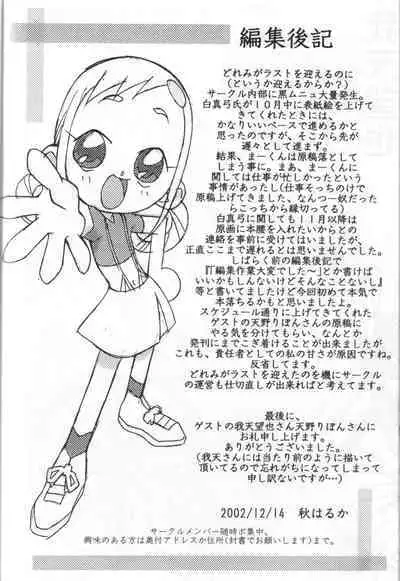 編集後記
どれみがラストを迎えるのに
(というか迎えるからか?)
サークル内部に黒ムニュ大量発生。
白真弓氏が10月中に表紙絵を上げて
きてくれたときには、
かなりいいペースで進めるかと
思ったのですが、そこから先が
遅々として進まず。
結果、まーくんは原稿落として
しまう事に。まあ、まーくんに
関しては仕事が忙しかったという
事情があったし(仕事そっちのけで
原稿上げてきました、なんつー奴だった
らこっちから縁切ってる)
白真弓に関しても11月以降は
原画に本腰を入れたいからとの
連絡を事前に受けてはいましたが、
正直ここまで遅れるとは思いませんでした。
しばらく前の編集後記で
『「編集作業大変でした〜」とか書けば
いいかもしんないけどそんなことないし』
等と書いてましたけど今回初めて本気で
本落ちるかもと思いましたよ。
スケジュール通りに上げてきてくれた
ゲストの天野りぼんさんの原稿に
やる気を分けてもらい、なんとか
発刊にまでこぎ着けることが出来ましたが
これも、責任者としての私の甘さが原因ですね。
反省してます。
どれみがラストを迎えたのを機にサークル
の運営も仕切直しが出来ればと考えてます。
最後に、
ゲストの我天望也さん天野りぼんさんに
お礼申し上げます。
ありがとうございました。
(我天さんには当たり前のように描いて
頂いてるので忘れがちになってしまって
申し訳ないですが…)
2002/12/14 秋はるか
サークルメンバー随時募集中。
興味のある方は奥付アドレスか住所(封書でお願いします)まで。